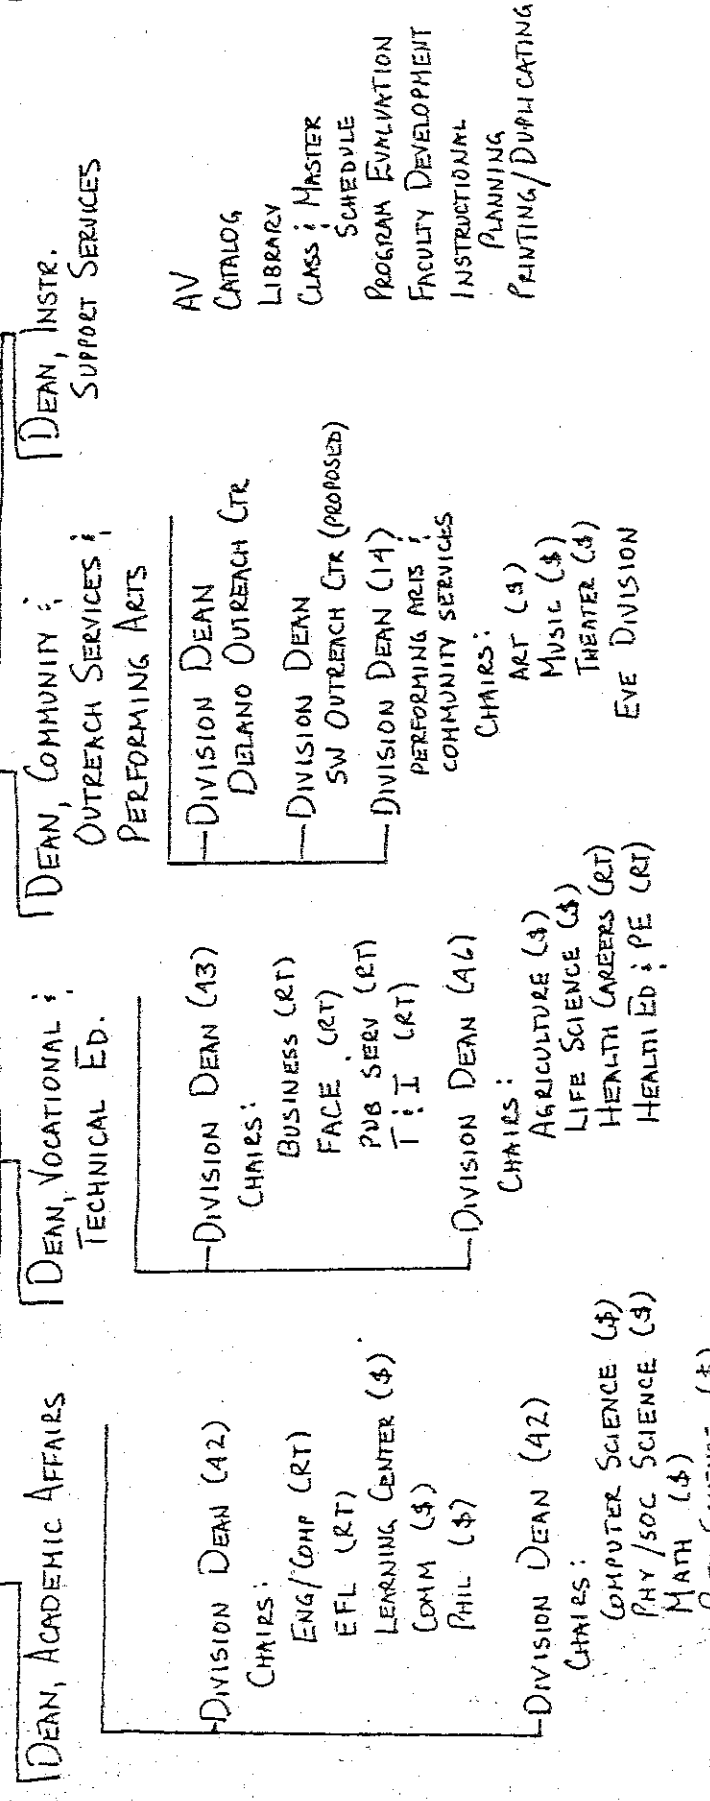 DEAN, ACADEMIC AFFAIRS
DIVISION DEAN (42)
CHAIRS:
ENG/COMP (RT)
EFL (RT)
LEARNING CENTER ($)
COMM ($)
PHIL ($)
DIVISION DEAN (42)
CHAIRS:
COMPUTER SCIENCE ($)
PHY/SOC SCIENCE ($)
MATH ($)
DEAN, VOCATIONAL &
TECHNICAL ED.
DIVISION DEAN (43)
CHAIRS:
BUSINESS (RT)
FACE (RT)
PUB SERV (RT)
T & I (RT)
DIVISION DEAN (46)
CHAIRS:
AGRICULTURE ($)
LIFE SCIENCE ($)
HEALTH CAREERS (RT)
HEALTH ED & PE (RT)
DEAN, COMMUNITY &
OUTREACH SERVICES &
PERFORMING ARTS
DIVISION DEAN
DELANO OUTREACH CTR
DIVISION DEAN
SW OUTREACH CTR (PROPOSED)
DIVISION DEAN (14)
PERFORMING ARTS &
COMMUNITY SERVICES
CHAIRS:
ART ($)
MUSIC ($)
THEATER ($)
EVE DIVISION
DEAN, INSTR.
SUPPORT SERVICES
AV
CATALOG
LIBRARY
CLASS & MASTER
SCHEDULE
PROGRAM EVALUATION
FACULTY DEVELOPMENT
INSTRUCTIONAL
PLANNING
PRINTING/DUPLICATING